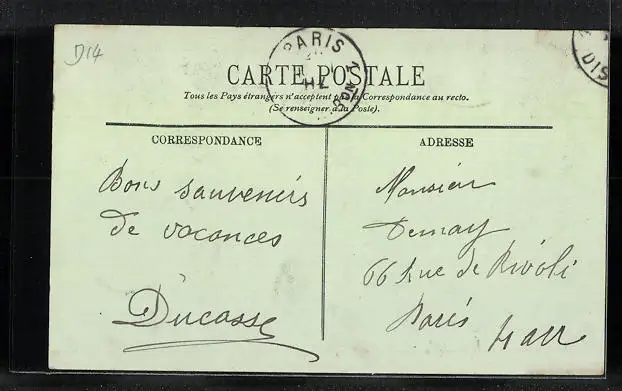 D14
PARIS
CARTE POSTALE
Tous les Pays étrangers n'acceptent pas la Correspondance au recto.
(Se renseigner à la Poste).
CORRESPONDANCE
Bons souvenirs
de vacances
Ducasse
ADRESSE
Monsieur
Demay
66 Rue de Rivoli
Paris
DIS